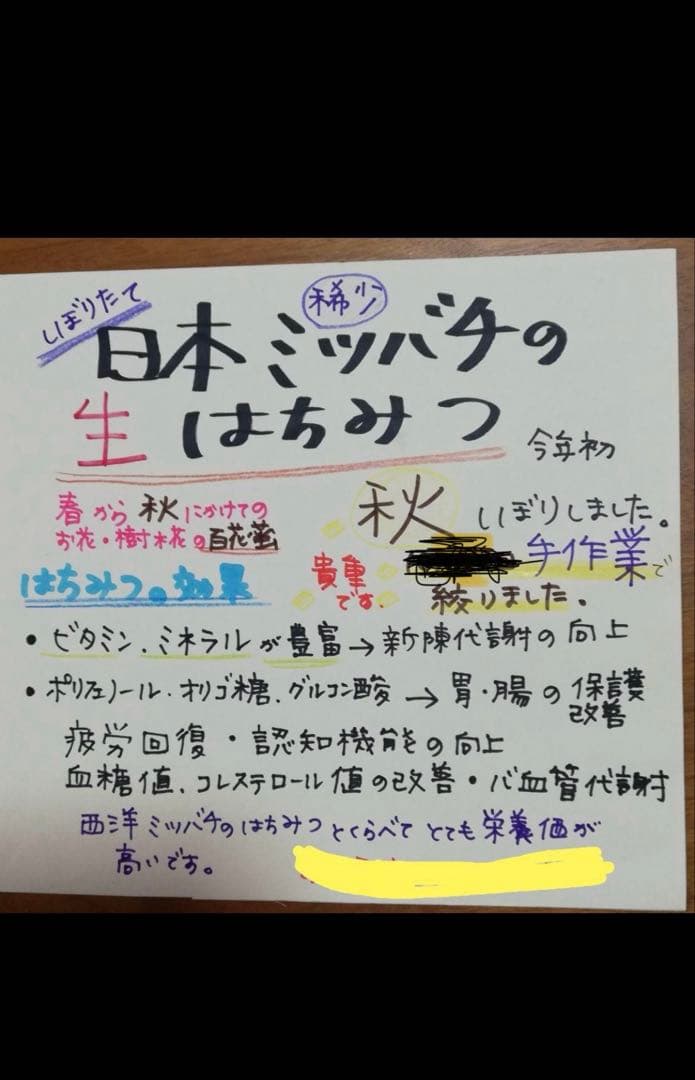 しぼりたて
稀少
日本ミツバチの
生はちみつ
今年初
春から秋にかけての
お花・樹木花の百花蜜
秋しぼりしました。
貴重です。
手作業で
絞りました.
はちみつの効果
• ビタミン.ミネラルが豊富→新陳代謝の向上
• ポリフェノール.オリゴ糖.グルコン酸→胃・腸の保護
改善
疲労回復・認知機能の向上
血糖値.コレステロール値の改善・心血管代謝
西洋ミツバチのはちみつとくらべてとても栄養価が
高いです。